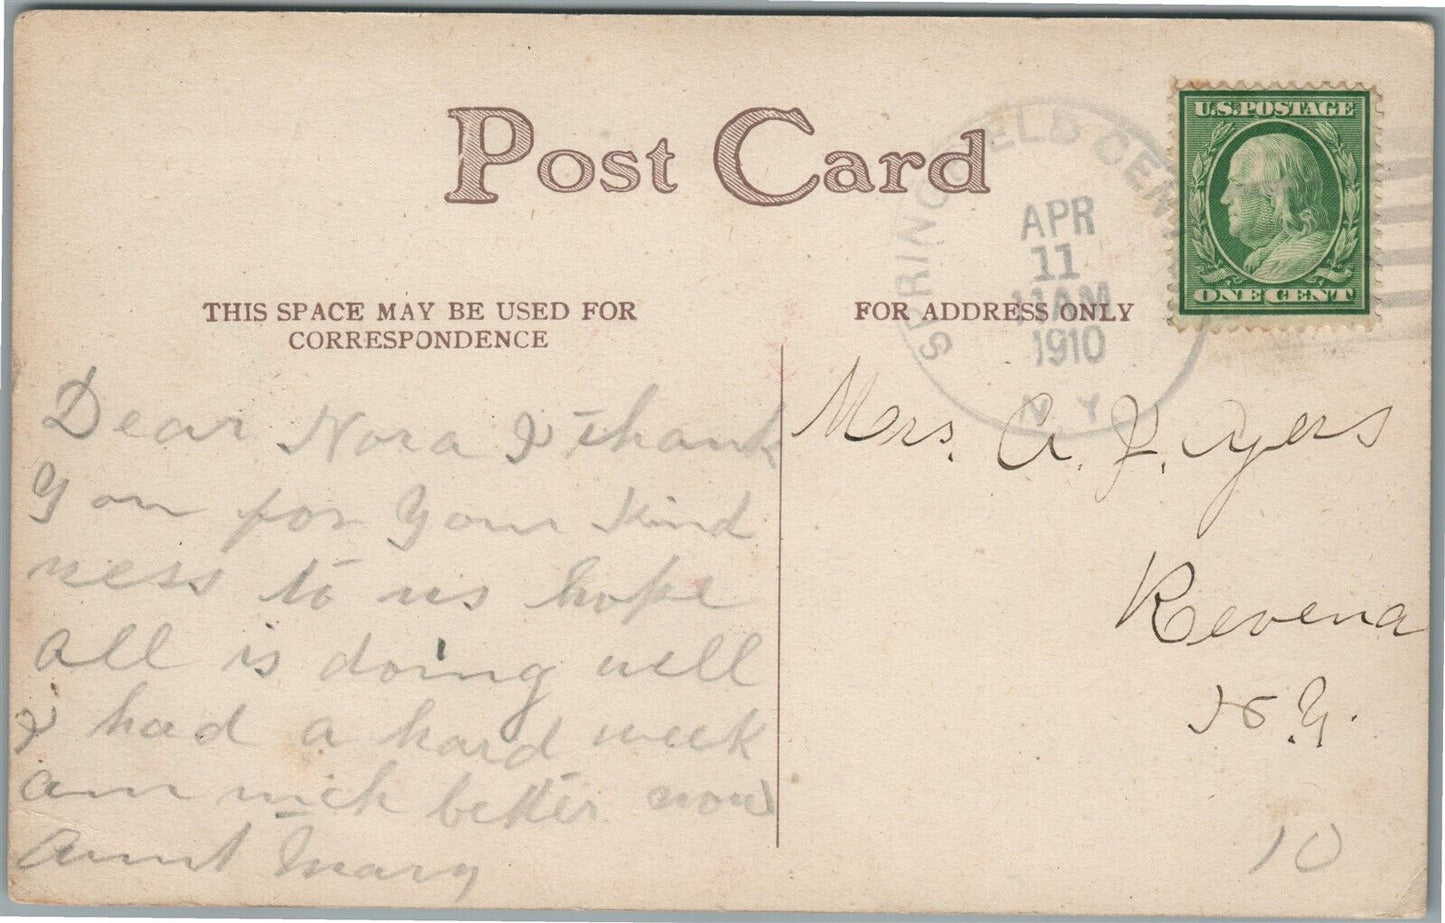 Post Card
U.S. POSTAGE
ONE CENT
SPRINGFIELD CEN
N.Y.
APR
11
11AM
1910
THIS SPACE MAY BE USED FOR
CORRESPONDENCE
FOR ADDRESS ONLY
Dear Nora I thank
you for your kind
ness to us hope
all is doing well
I had a hard week
am mich better now
Aunt Mary
Mrs. A. J. Ayers
Revena
N.Y.
10